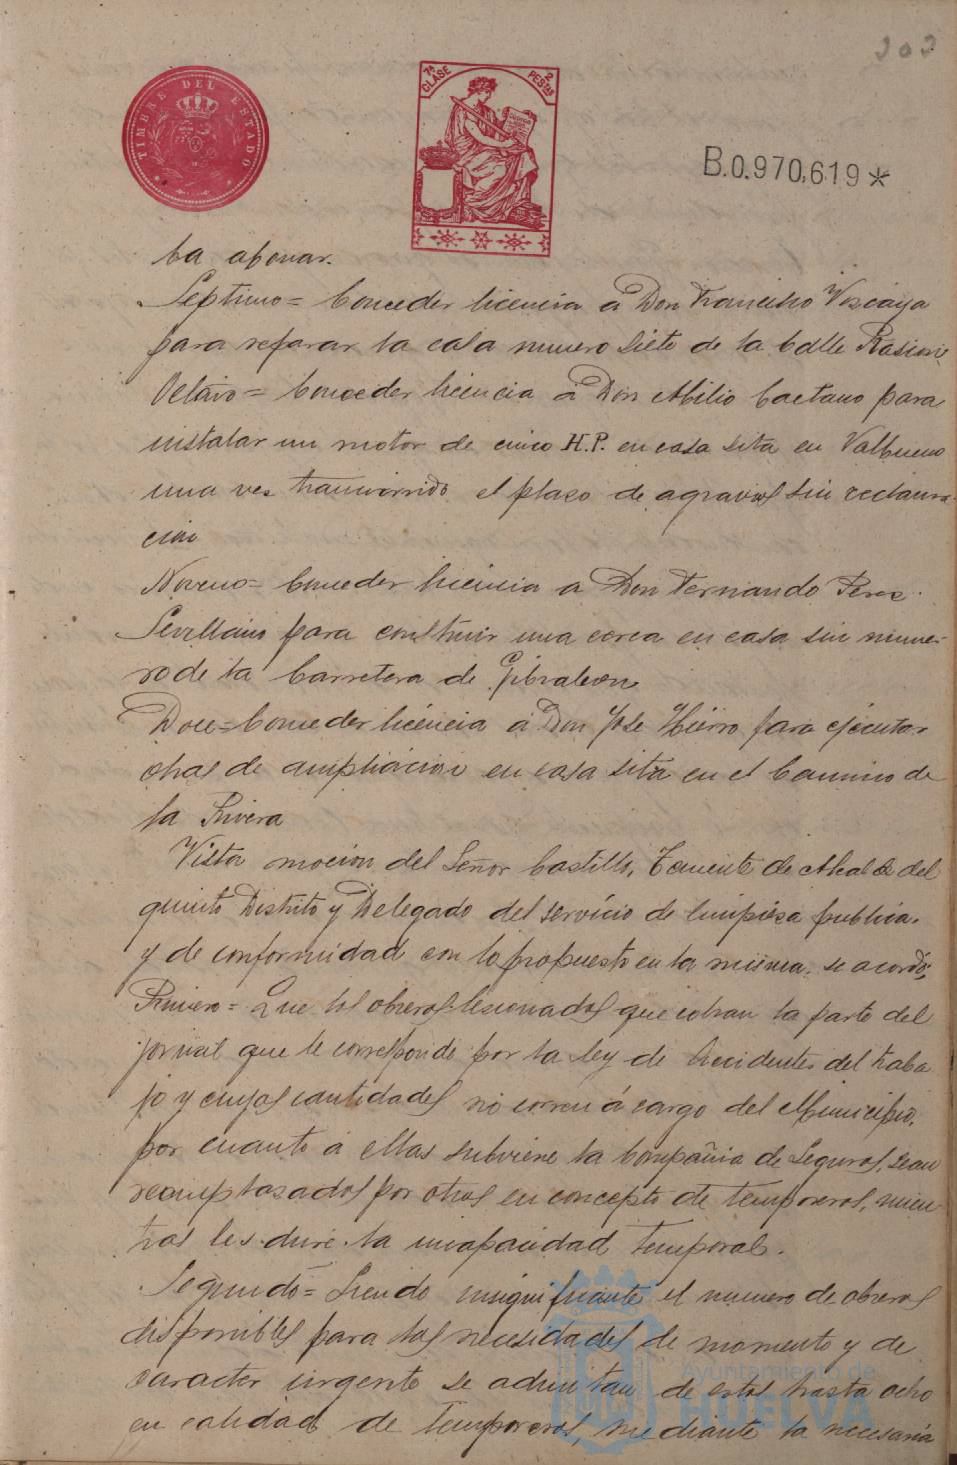 202
TIMBRE DEL ESTADO
7ª CLASE 2 PESTAS
B.0.970,619*
ba abonar.
Septimo = Conceder licencia a Don Francisco Viscaya
para reparar la casa numero siete de la Calle
Octavo = Conceder licencia a Don Abilio Caetano para
instalar un motor de cinco H.P. en casa sita en Valbueno
una ves trancurrido el plaso de agravios sin reclama-
cion
Noveno = Conceder licencia a Don Fernando Peres
Sevillano para construir una cerca en casa sin nume-
ro de la Carretera de Gibraleon
Doce = Conceder licencia a Don José Hierro para ejecutar
obras de ampliacion en casa sita en el Camino de
la Rivera
Vista mocion del Señor Castillo, Teniente de Alcalde del
quinto Distrito y Delegado del servicio de limpiesa publica.
y de conformidad con lo propuesto en la misma, se acordó;
Primero = Que los obreros lesionados que cobran la parte del
jornal que le corresponde por la ley de Accidentes del traba
jo y cuyas cantidades no corren á cargo del Municipio,
por cuanto a ellas subviene la Compañia de Seguros, sean
reemplasados por otros en concepto de temporeros, mien
tras les dure la incapacidad temporal.
Segundo = Siendo insignificante el numero de obreros
disponibles para las necesidades de momento y de
caracter urgente se admitan de estos hasta ocho
en calidad de temporeros, mediante la necesaria
Ayuntamiento de
HUELVA